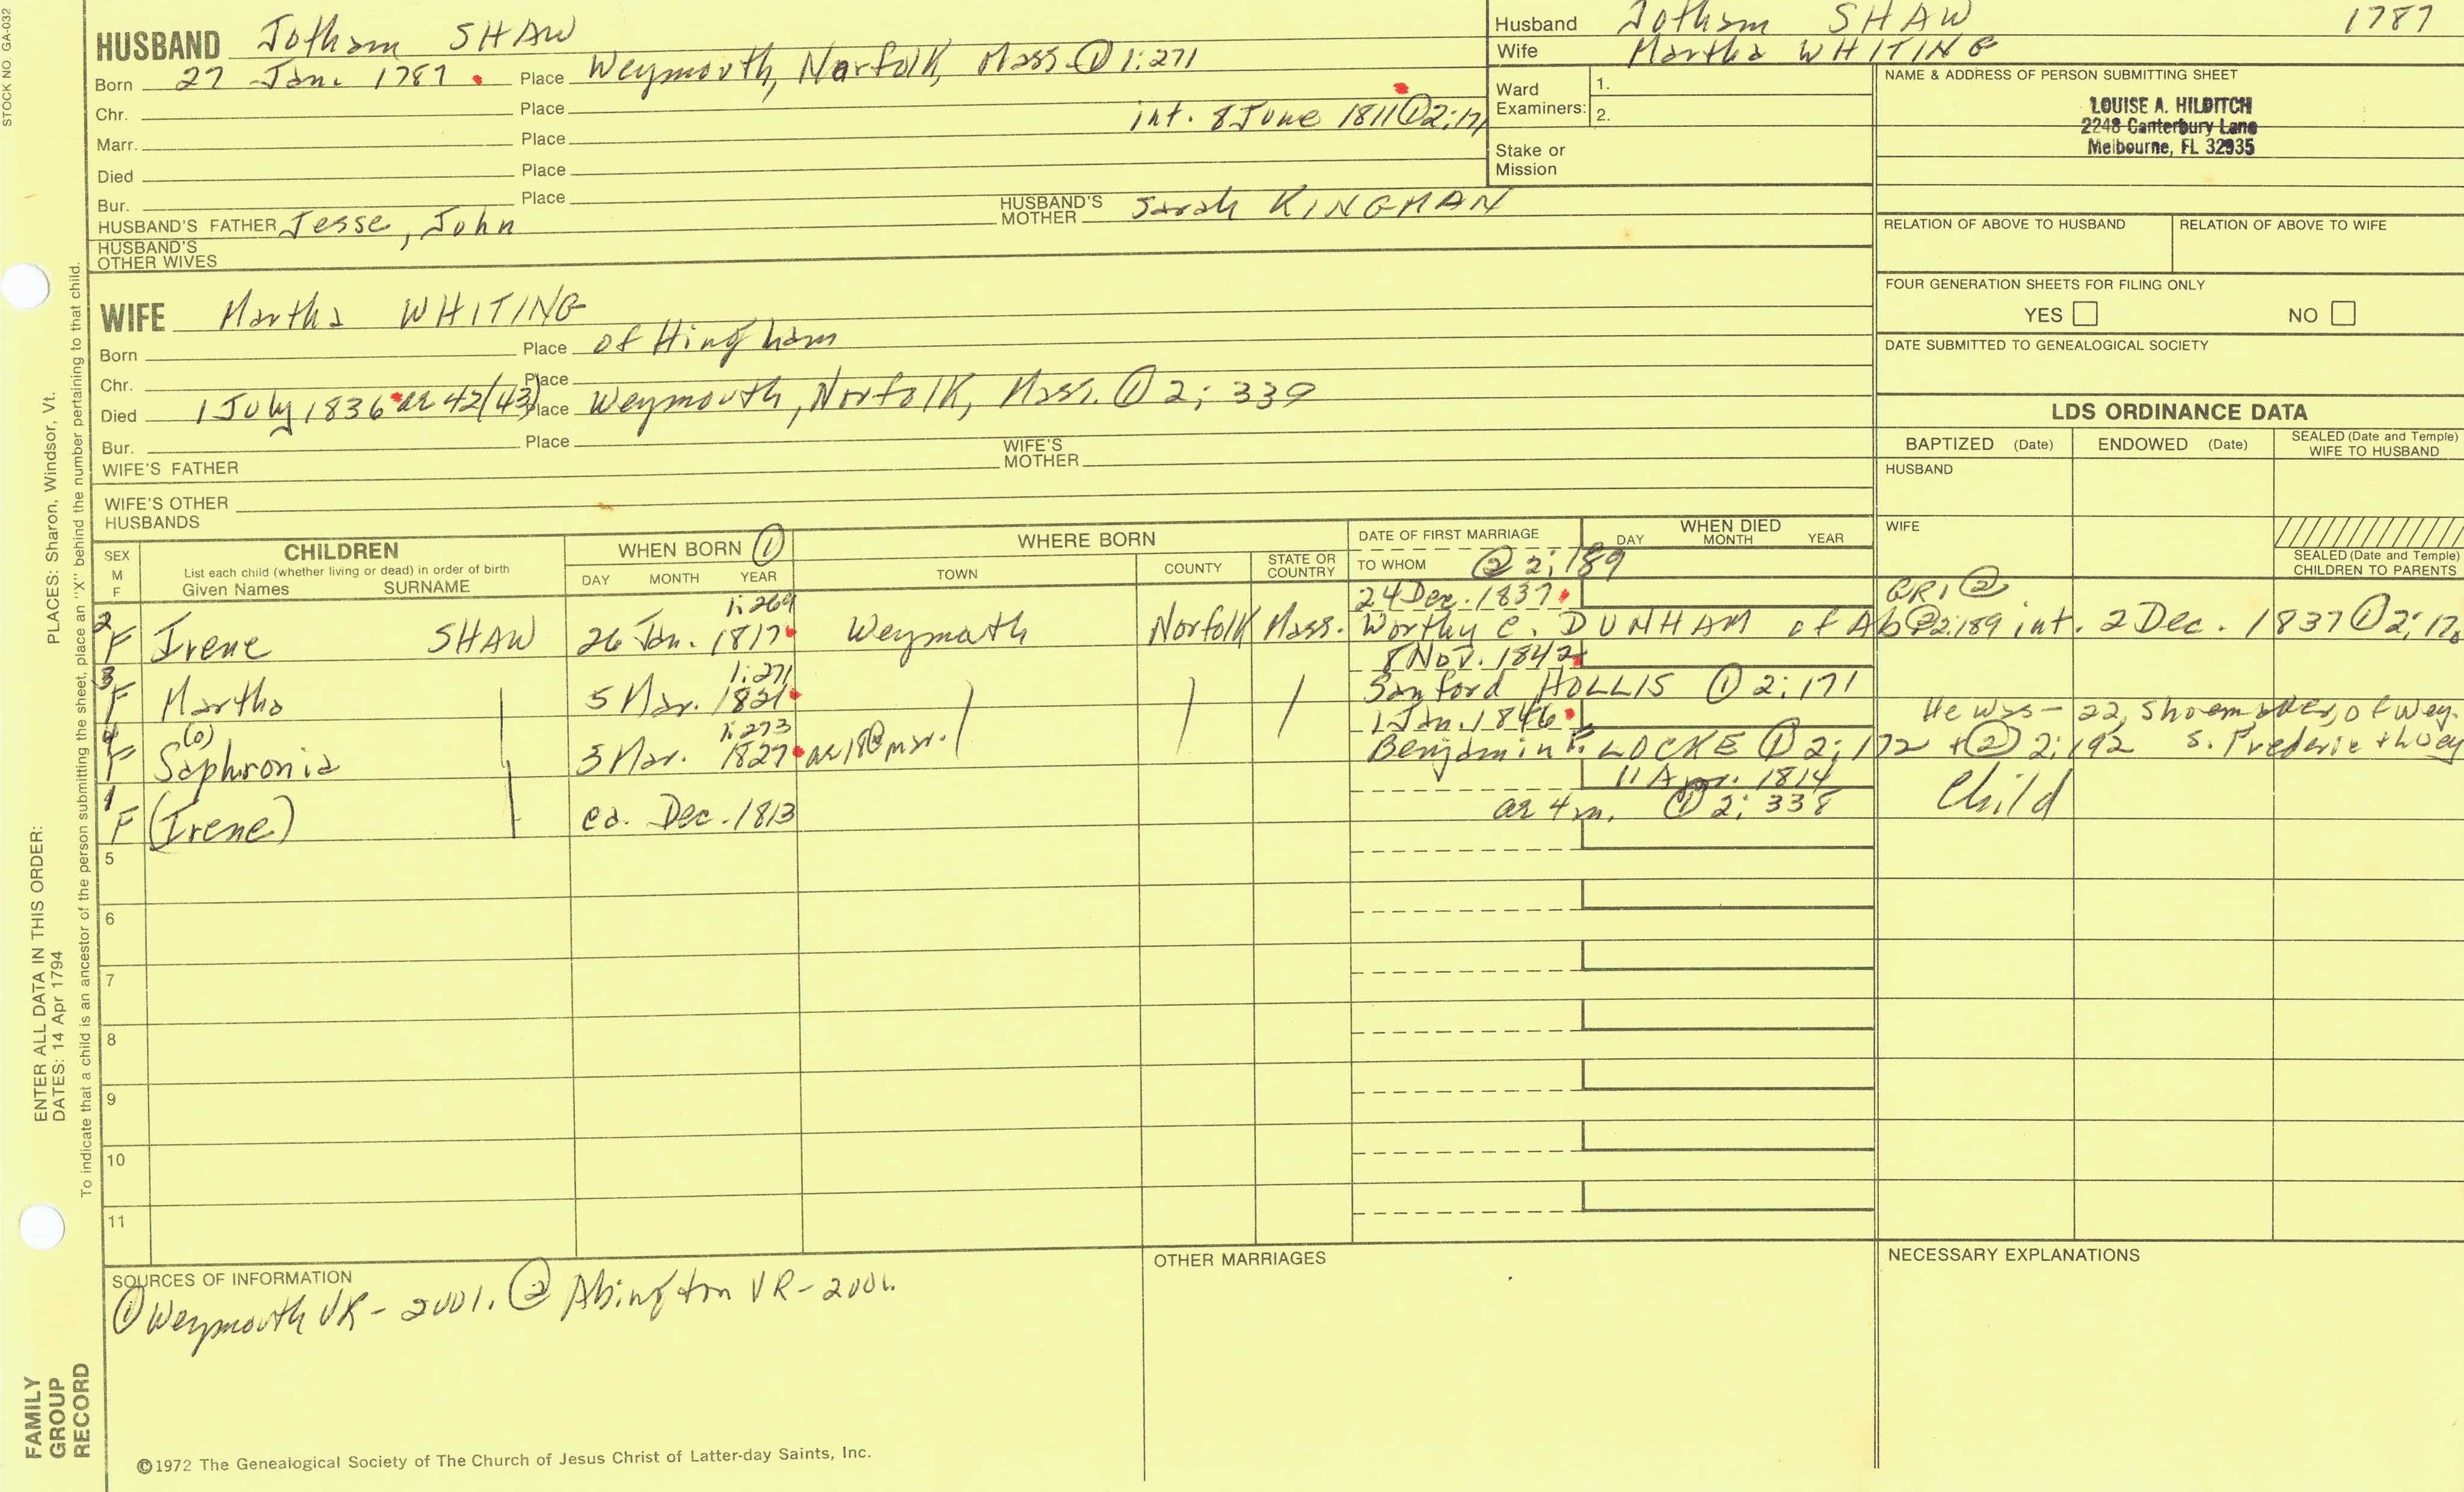 STOCK NO GA-032
HUSBAND Jotham SHAW
Born 27 Jan. 1787 Place Weymouth, Norfolk, Mass. ① 1:271
Chr. Place
int. 8 June 1811 ① 2:
Marr. Place
Died Place
Bur. Place
HUSBAND'S FATHER Jesse, John HUSBAND'S MOTHER Sarah KINGMAN
HUSBAND'S OTHER WIVES
WIFE Martha WHITING
Born Place of Hingham
Chr. Place
Died 1 July 1836 ae 42/43) Place Weymouth, Norfolk, Mass. ① 2; 339
Bur. Place
WIFE'S FATHER WIFE'S MOTHER
WIFE'S OTHER HUSBANDS
Husband Jotham SHAW 1787
Wife Martha WHITING
Ward Examiners: 1.
2.
Stake or Mission
NAME & ADDRESS OF PERSON SUBMITTING SHEET
LOUISE A. HILDITCH
2248 Canterbury Lane
Melbourne, FL 32935
RELATION OF ABOVE TO HUSBAND RELATION OF ABOVE TO WIFE
FOUR GENERATION SHEETS FOR FILING ONLY
YES NO
DATE SUBMITTED TO GENEALOGICAL SOCIETY
LDS ORDINANCE DATA
BAPTIZED (Date) ENDOWED (Date) SEALED (Date and Temple) WIFE TO HUSBAND
HUSBAND
WIFE
SEALED (Date and Temple) CHILDREN TO PARENTS
SEX M F
CHILDREN
List each child (whether living or dead) in order of birth
Given Names SURNAME
WHEN BORN ①
DAY MONTH YEAR
WHERE BORN
TOWN COUNTY STATE OR COUNTRY
DATE OF FIRST MARRIAGE
TO WHOM ② 2; 189
WHEN DIED
DAY MONTH YEAR
1:269 24 Dec. 1837 ②
2 F Irene SHAW 26 Jan. 1817 Weymouth Norfolk Mass. Worthy C. DUNHAM of Ab ② 2:189 int. 2 Dec. 1837 ① 2;
1:271 8 Nov. 1842
3 F Martha 5 Mar. 1821 Sanford HOLLIS ① 2; 171
1:273 1 Jan. 1846 He was - 22, shoemaker, of Wey.
4 F (o) Saphronia 3 Mar. 1827 ae 18 @ mar. Benjamin F. LOCKE ① 2; 172 + ② 2; 192 s. Frederic +
11 Apr. 1814
1 F (Irene) ca. Dec. 1813 ae 4 m. ① 2; 338 Child
5
6
7
8
9
10
11
SOURCES OF INFORMATION
① Weymouth VR - 2001. ② Abington VR - 2001.
OTHER MARRIAGES
NECESSARY EXPLANATIONS
©1972 The Genealogical Society of The Church of Jesus Christ of Latter-day Saints, Inc.
PLACES: Sharon, Windsor, Vt.
To indicate that a child is an ancestor of the person submitting the sheet, place an "X" behind the number pertaining to that child.
ENTER ALL DATA IN THIS ORDER:
DATES: 14 Apr 1794
FAMILY GROUP RECORD